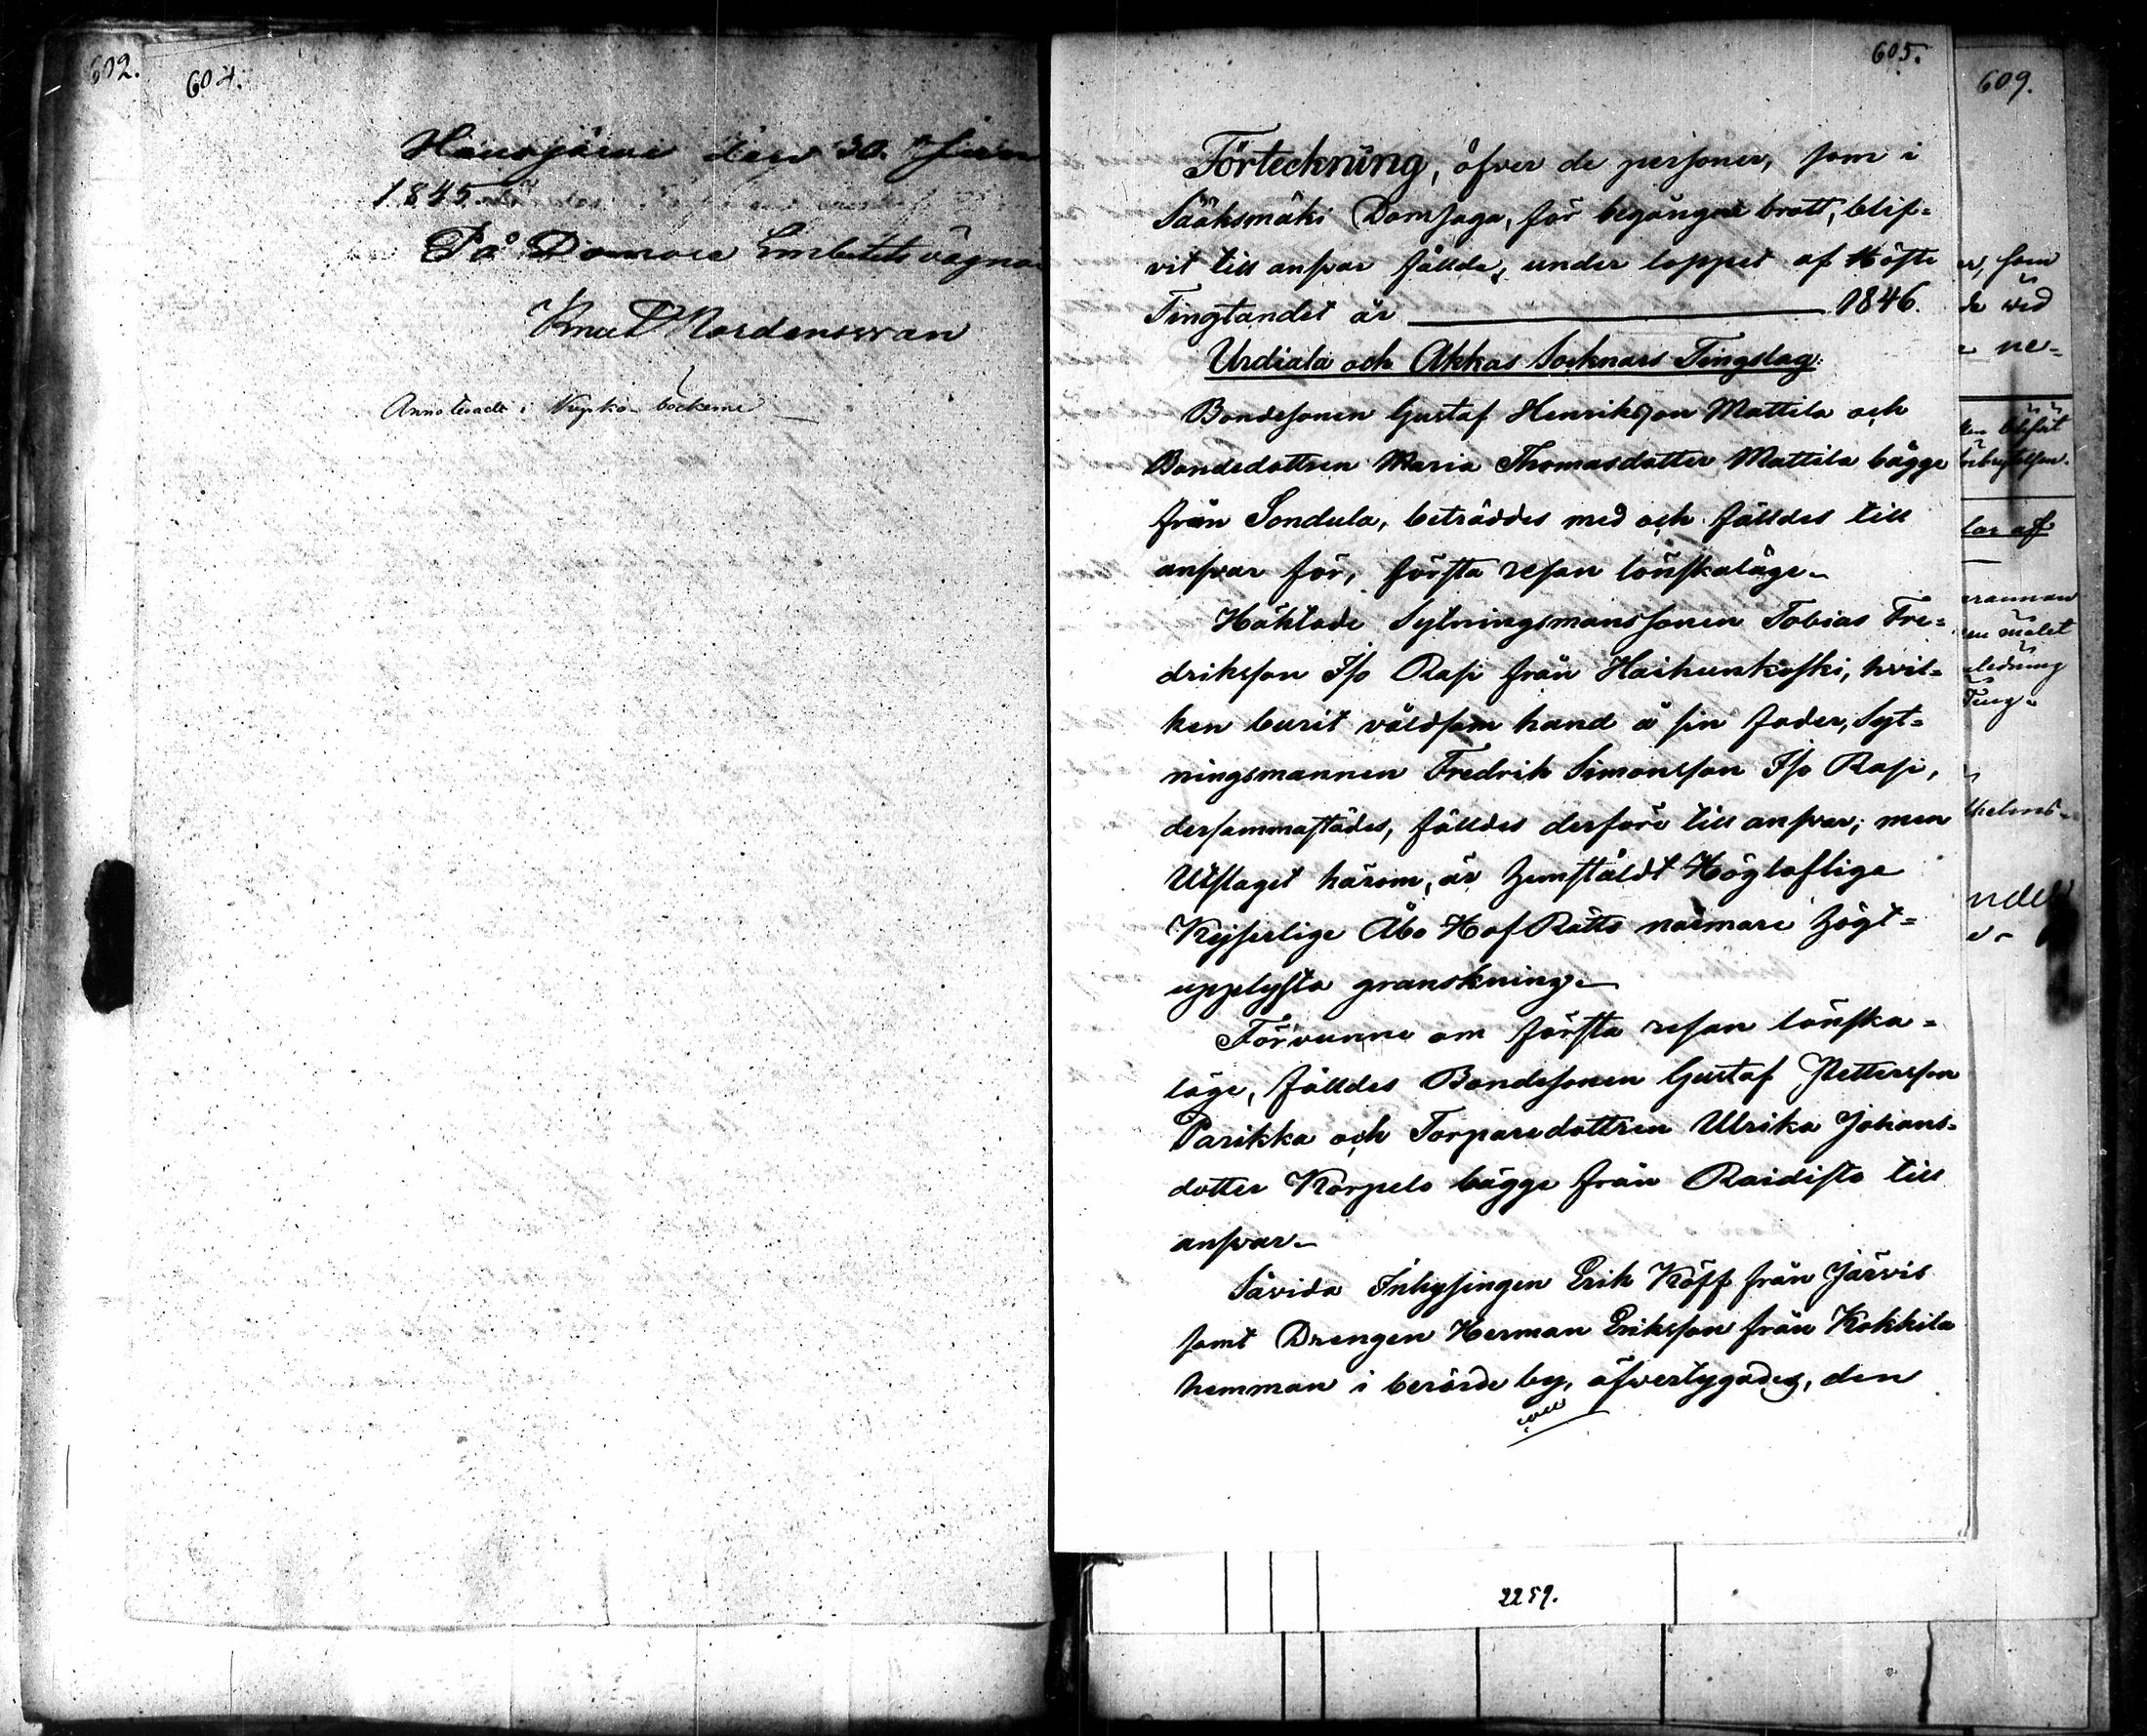 602.
604.
Hausjärvi den 30. Juni
1845
På Domare Embetets vägnar
Knut Nordenswan
Annoterade i Kyrko böckerne
605.
Förteckning, öfver de personer, som i
Sääksmäki Domsaga, för begångne brott, blif=
vit till ansvar fällde, under loppet af Höste
Tingtandet år 1846.
Urdiala och Akkas Socknars Tingslag:
Bondesonen Gustaf Henriksson Mattila och
Bondedottren Maria Thomasdotter Mattila bägge
från Sondula, beträddes med och fälldes till
ansvar för, första resan lönskaläge.
Häktade Sytningsmanssonen Tobias Fre=
driksson Iso Rasi från Haihunkoski, hvil=
ken burit våldsam hand å sin fader, Syt=
ningsmannen Fredrik Simonsson Iso Rasi,
dersammastädes, fälldes derföre till ansvar; men
Utslaget härom, är hemstäldt Högloflige
Kejserlige Åbo Hof Rätts närmare högt=
upplysta granskning.
Förvunne om första resan lönska=
läge, fälldes Bondesonen Gustaf Pettersson
Parikka och Torparedottren Ulrika Johans=
dotter Korpela bägge från Raidisto till
ansvar.
Såvida Inhysingen Erik Köff från Järvis
samt Drengen Herman Eriksson från Kokkila
hemman i berörde by, öfvertygades, den
609.
som
de wid
ne=
blifvit
lar af
målet
ledning
Ting=
helms=
2259.